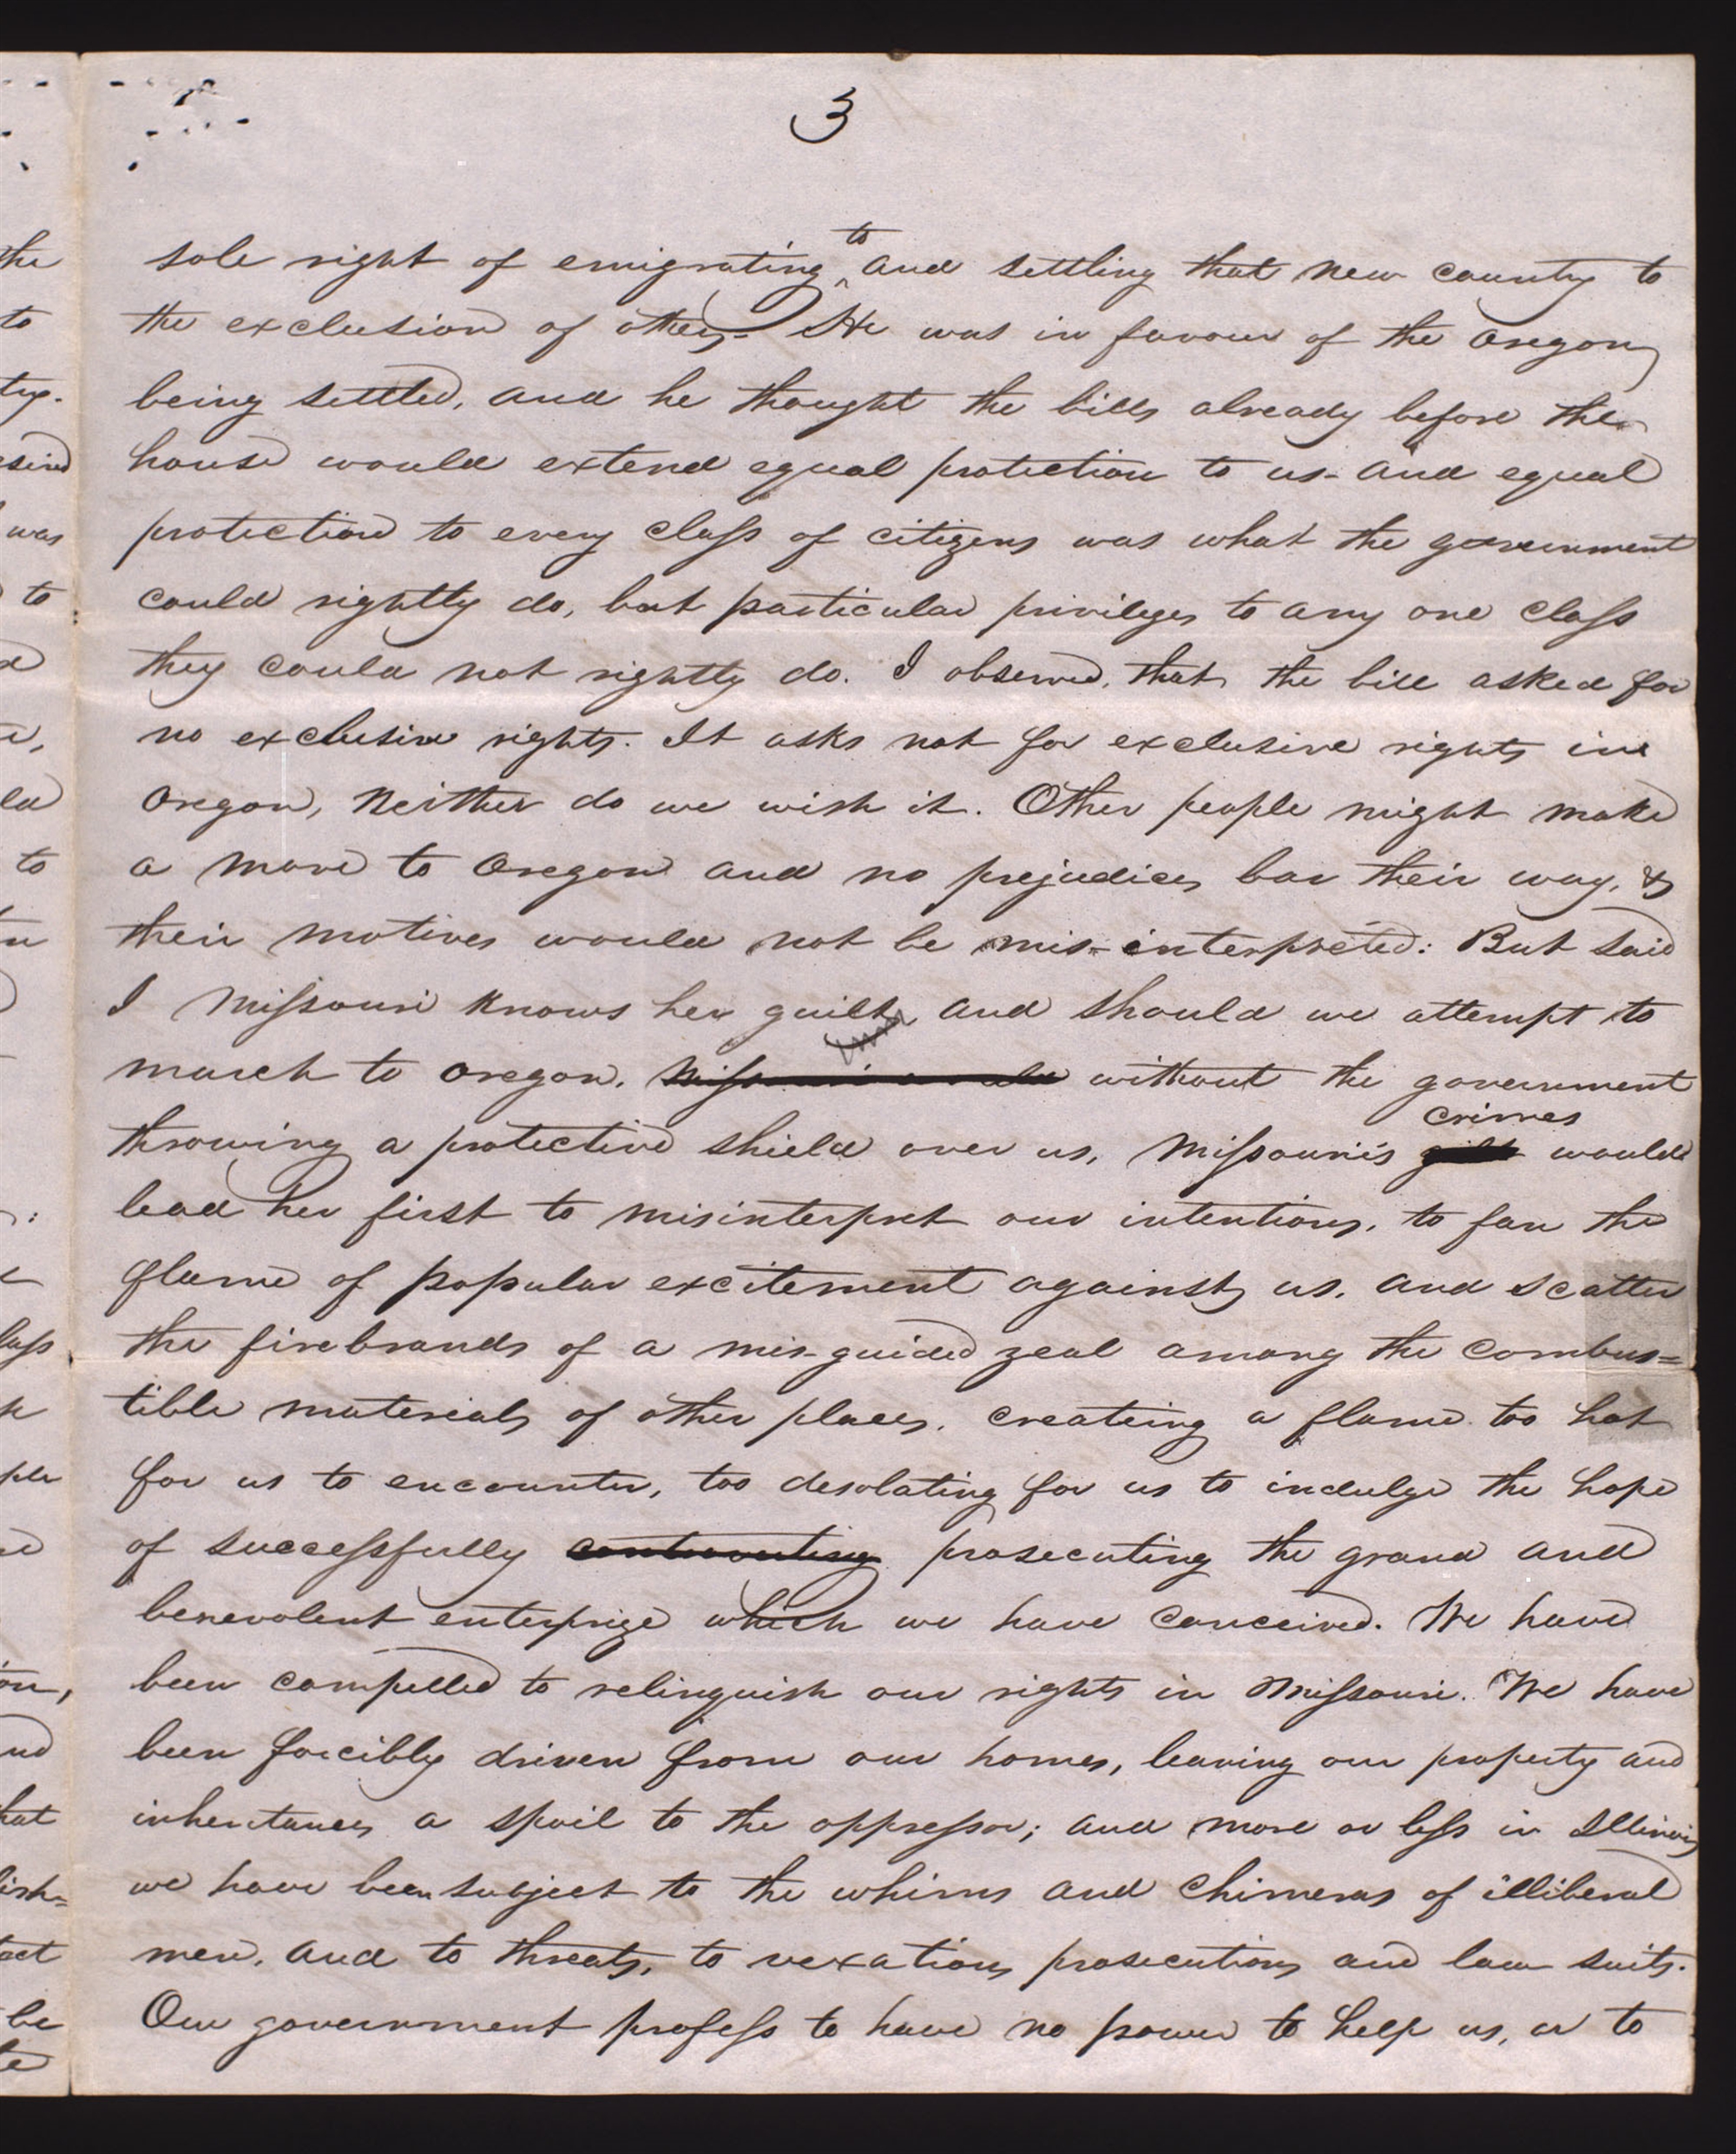 3
sole right of emigrating ^to and settling that new country to
the exclusion of others. He was in favour of the Oregon
being settled, and he thought the bills already before the
house would extend equal protection to us- and equal
protection to every class of citizens was what the government
could rightly do, but particular privileges to any one class
they could not rightly do. I observed, that the bill asked for
no exclusive rights. It asks not for exclusive rights in
Oregon, neither do we wish it. Other people might make
a move to Oregon and no prejudices bar their way, &
their motives would not be mis-interpreted: But said
I Missouri knows her guilt, and should we attempt to
march to Oregon, without the government
throwing a protective shield over us, Missouri's crimes would
lead her first to misinterpret our intentions, to fan the
flame of popular excitement against us, and scatter
the firebrands of a mis-guided zeal among the combus=
tible materials of other places, creating a flame too hot
for us to encounter, too desolating for us to indulge the hope
of successfully prosecuting the grand and
benevolent enterprize which we have conceived. We have
been compelled to relinquish our rights in Missouri. We have
been forcibly driven from our homes, leaving our property and
inheritances a spoil to the oppressor; and more or less in Illinois
we have been subject to the whims and chimeras of illiberal
men, and to threats, to vexatious prosecutions and law suits.
Our government profess to have no power to help us, or to